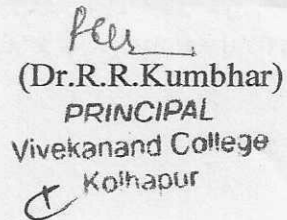 (Dr.R.R.Kumbhar)
PRINCIPAL
Vivekanand College
Kolhapur